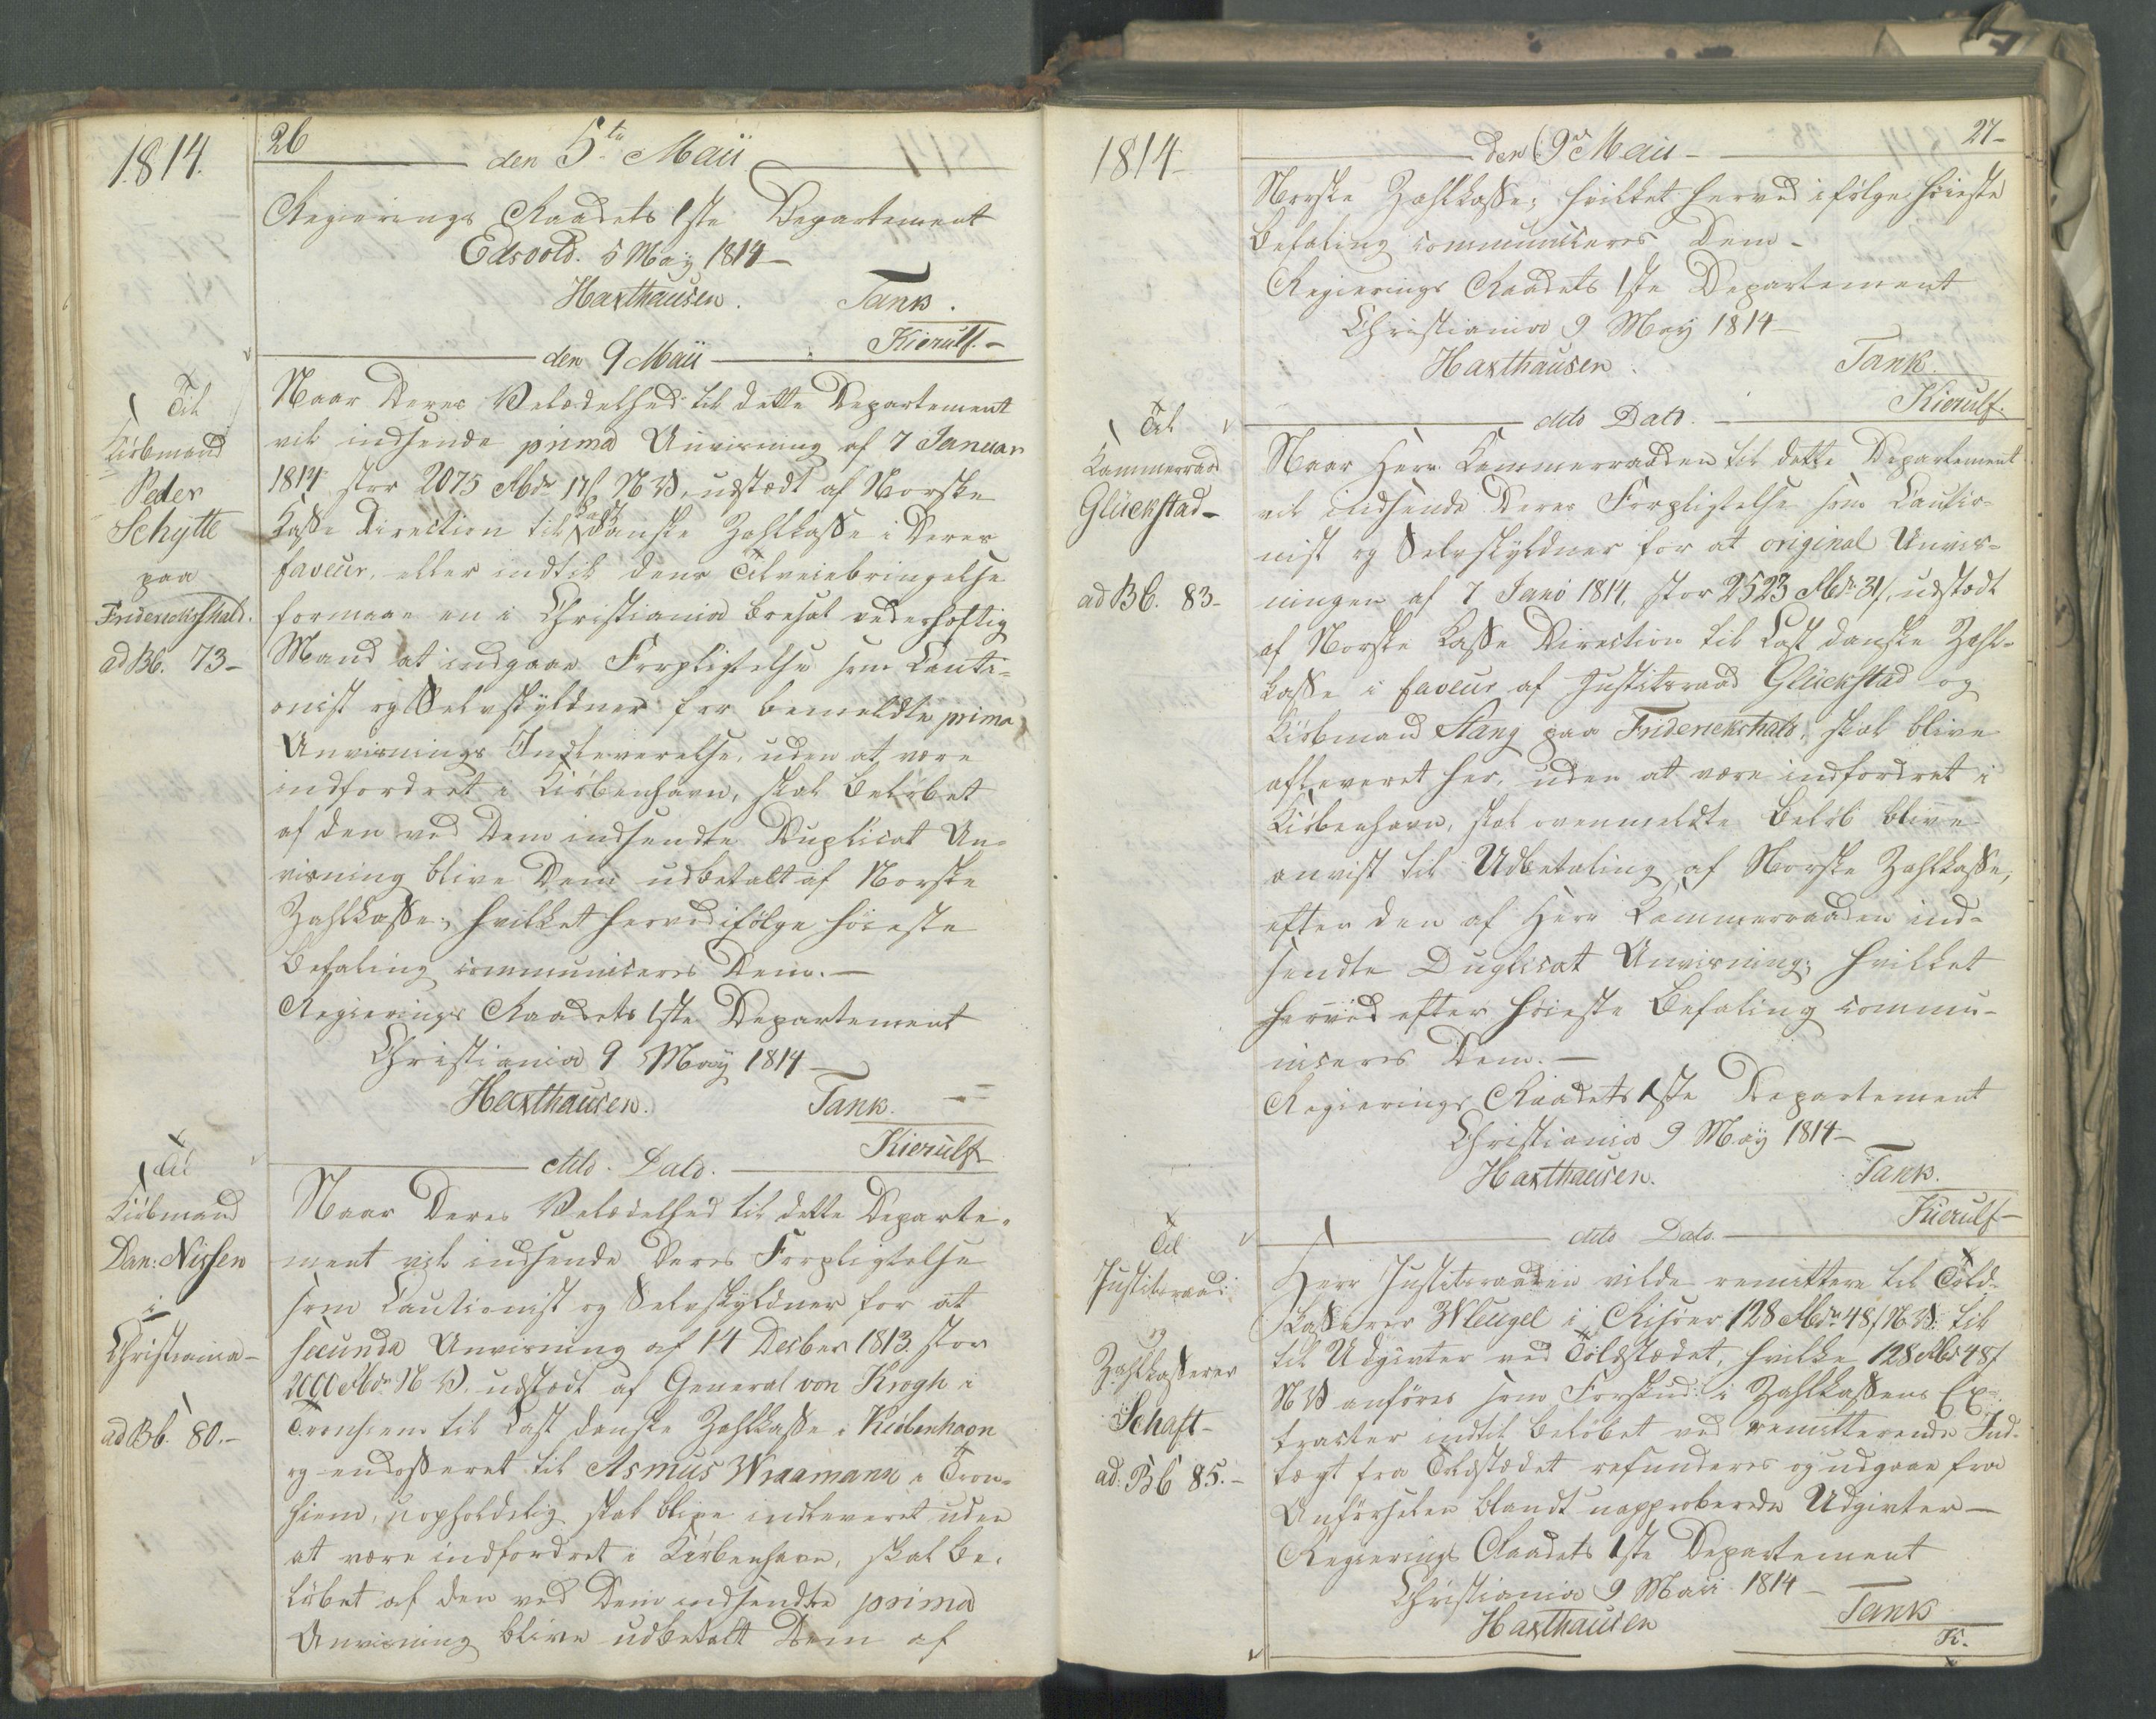 1814.
26
den 5te Maii
Regierings Raadets 1ste Departement
Edsvold. 5 May 1814 –
Haxthausen. Tank.
Kierulf. –
den 9 Maii
Til
Kiöbmand
Peder
Schytte
paa
Friderichshald.
ad B6. 73 –
Naar Deres Velædelhed til dette Departement
vil indsende prima Anvisning af 7 Januar
1814 stor 2075 Rbdr 17 s N V, udstædt af Norske
Casse Direction til Cast danske Zahlkasse i Deres
faveur, eller indtil dens Tilveiebringelse
formaae en i Christiania boesat vederhæftig
Mand at indgaae Forpligtelse som Cauti-
onist og Selvskyldner for bemeldte prima
Anvisnings Indleverelse, uden at være
indfordret i Kiöbenhavn, skal Belöbet
af den ved Dem indsendte Duplicat An-
visning blive Dem udbetalt af Norske
Zahlkasse; hvilket herved ifölge höieste
Befaling communiceres Dem. –
Regierings Raadets 1ste Departement
Christiania 9 May 1814 –
Haxthausen. Tank.
Kierulf
dito Dato.
Til
Kiöbmand
Dan: Nissen
i
Christiania –
ad B6. 80. –
Naar Deres Velædelhed til dette Departe-
ment vil indsende Deres Forpligtelse
som Cautionist og Selvskyldner for at
secunda Anvisning af 14 Decber 1813. stor
2000 Rbdr N V. udstædt af General von Krogh i
Tronhiem til Cast danske Zahlkasse i Kiöbenhavn
og endosseret til Asmus Wraamann i Tron-
hiem, uopholdelig skal blive indleveret uden
at være indfordret i Kiöbenhavn, skal Be-
löbet af den ved Dem indsendte prima
Anvisning blive udbetalt Dem af
1814 –
27 –
den 9de Maii –
Norske Zahlkasse; hvilket herved ifölge höieste
Befaling communiceres Dem –
Regierings Raadets 1ste Departement
Christiania 9 May 1814 –
Haxthausen. Tank.
Kierulf.
dito Dato.
Til
Kammerraad
Glückstad –
ad B6. 83 –
Naar Herr Kammerraaden til dette Departement
vil indsende Deres Forpligtelse som Cautio-
nist og Selvskyldner for at original Anvis-
ningen af 7 Janv 1814, stor 2523 Rbdr 31 s, udstædt
af Norske Casse Direction til Cast danske Zahl-
kasse i faveur af Justitsraad Glückstad og
Kiöbmand Stang paa Friderickshald, skal blive
afleveret her, uden at være indfordret i
Kiöbenhavn, skal ovenmeldte Belöb blive
anvist til Udbetaling af Norske Zahlkasse,
efter den af Herr Kammerraaden ind-
sendte Duplicat Anvisning; hvilket
herved efter höieste Befaling commu-
niceres Dem. –
Regierings Raadets 1ste Departement
Christiania 9 May 1814 –
Haxthausen. Tank.
Kierulf –
dito Dato.
Til
Justitsraad
og
Zahlkasserer
Schaft –
ad. B6 85. –
Herr Justitsraaden vilde remittere til Told-
Casserer Wleugel i Risöer 128 Rbdr 48 s N V. til
til Udgivter ved Toldstædet, hvilke 128 Rbdr 48 s
N V anföres som Forskud i Zahlkassens Ex-
tracter indtil Belöbet ved remitterende Ind-
tægt fra Toldstædet refunderes og udgaae fra
Anförselen blandt uapproberede Udgivter –
Regierings Raadets 1ste Departement
Christiania 9 Maii 1814 –
Haxthausen Tank
K.